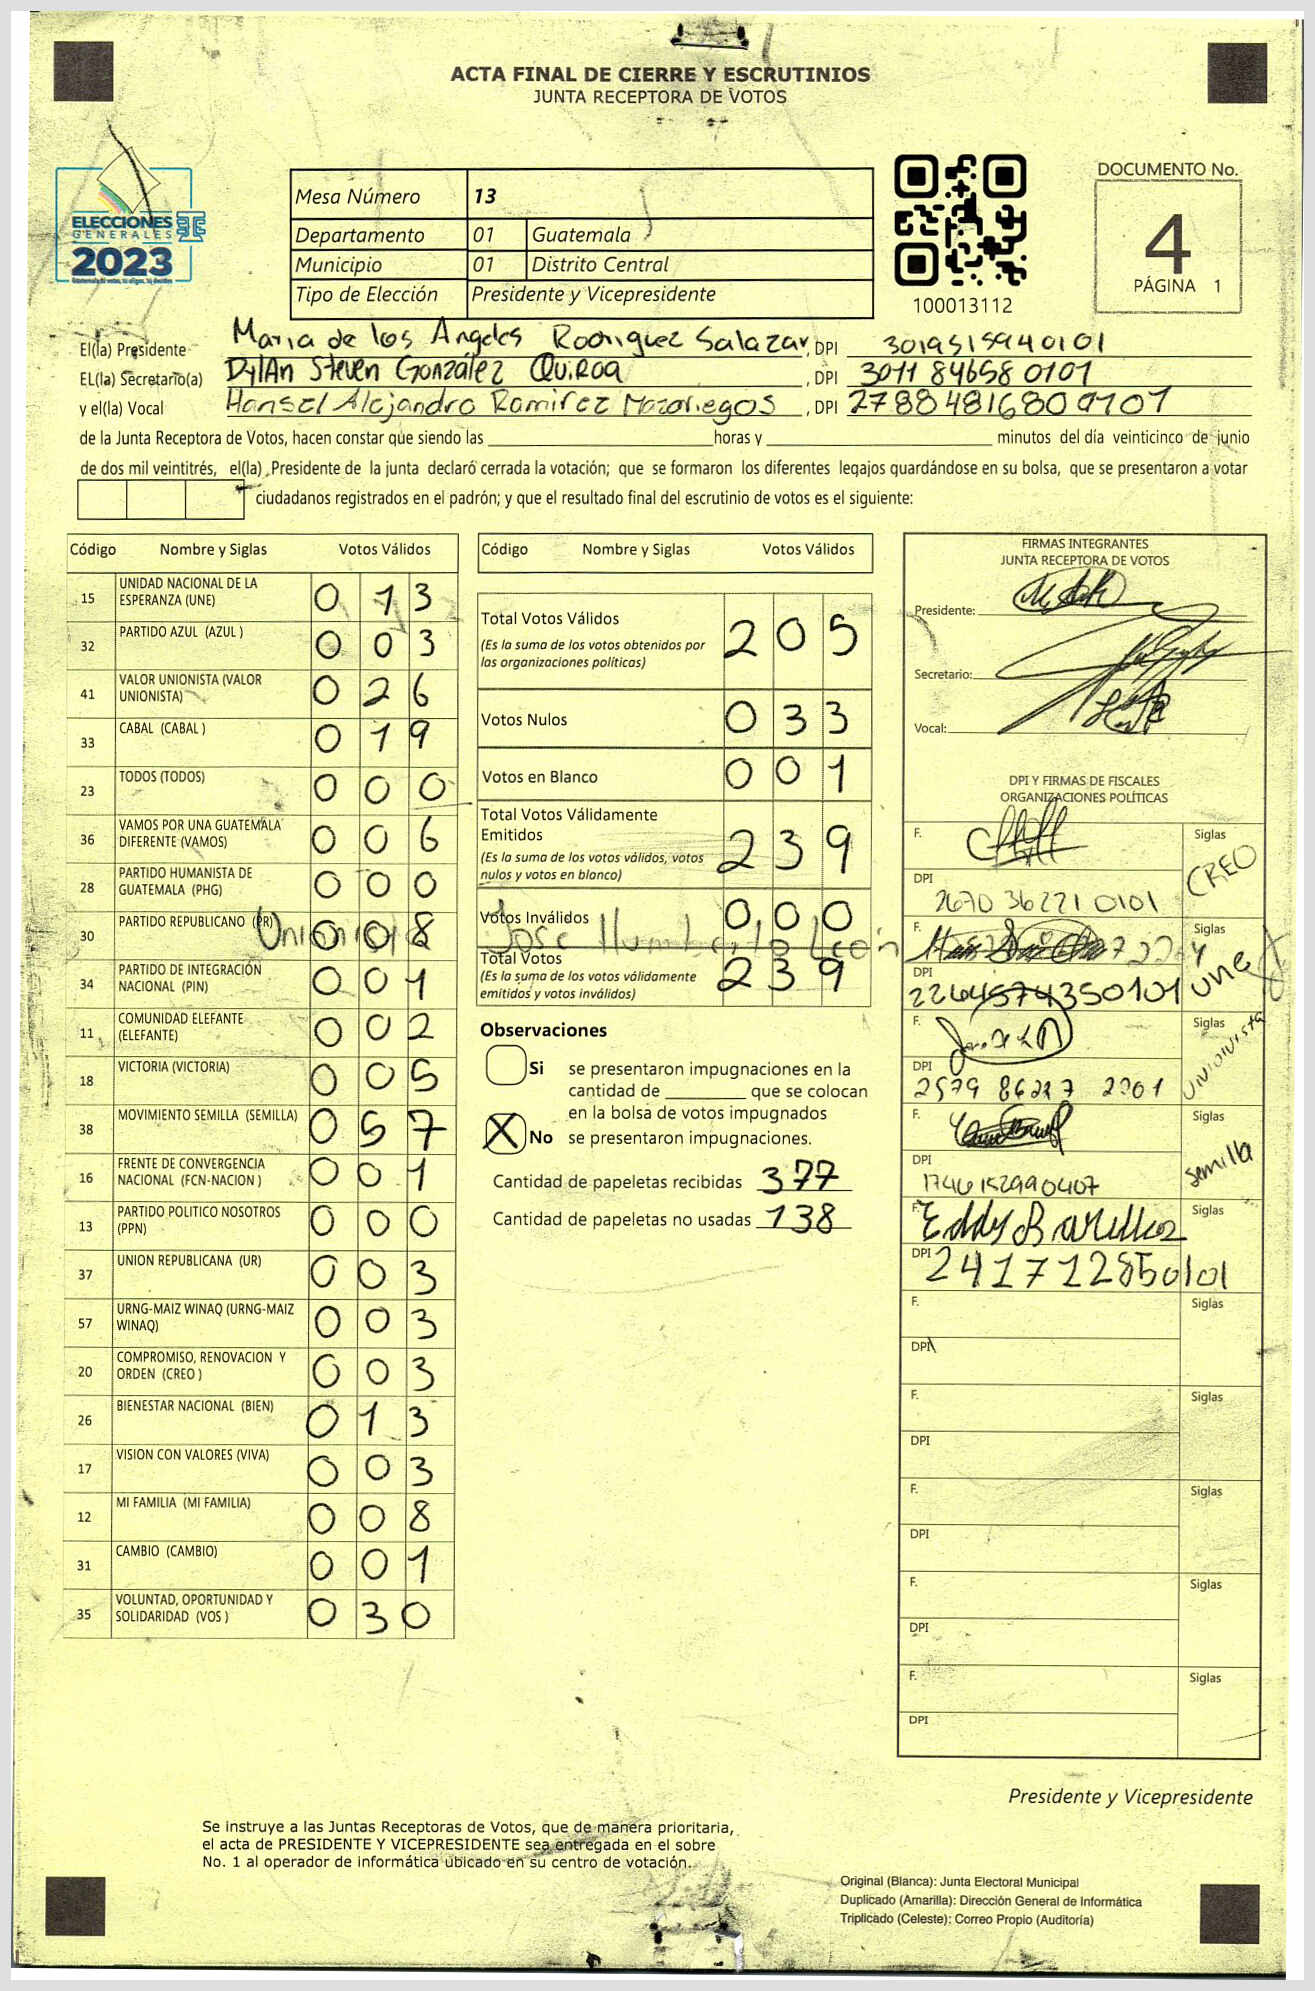 ACTA FINAL DE CIERRE Y ESCRUTINIOS
JUNTA RECEPTORA DE VOTOS
ELECCIONES
GENERALES
2023
Mesa Número 13
Departamento 01 Guatemala
Municipio 01 Distrito Central
Tipo de Elección Presidente y Vicepresidente
100013112
DOCUMENTO No.
4
PÁGINA 1
El(la) Presidente Maria de los Angeles Rodriguez Salazar, DPI 3019515940101
EL(la) Secretario(a) DylAn Steven González QuiRoa, DPI 3011 84658 0101
y el(la) Vocal Hansel Alejandro Ramirez Mazariegos, DPI 2788481680101
de la Junta Receptora de Votos, hacen constar que siendo las horas y minutos del día veinticinco de junio
de dos mil veintitrés, el(la) Presidente de la junta declaró cerrada la votación; que se formaron los diferentes legajos quardándose en su bolsa, que se presentaron a votar
ciudadanos registrados en el padrón; y que el resultado final del escrutinio de votos es el siguiente:
Código Nombre y Siglas Votos Válidos
15 UNIDAD NACIONAL DE LA ESPERANZA (UNE) 0 1 3
32 PARTIDO AZUL (AZUL ) 0 0 3
41 VALOR UNIONISTA (VALOR UNIONISTA) 0 2 6
33 CABAL (CABAL ) 0 1 9
23 TODOS (TODOS) 0 0 0
36 VAMOS POR UNA GUATEMALA DIFERENTE (VAMOS) 0 0 6
28 PARTIDO HUMANISTA DE GUATEMALA (PHG) 0 0 0
30 PARTIDO REPUBLICANO (PR) 0 0 8
34 PARTIDO DE INTEGRACIÓN NACIONAL (PIN) 0 0 1
11 COMUNIDAD ELEFANTE (ELEFANTE) 0 0 2
18 VICTORIA (VICTORIA) 0 0 5
38 MOVIMIENTO SEMILLA (SEMILLA) 0 5 7
16 FRENTE DE CONVERGENCIA NACIONAL (FCN-NACION ) 0 0 1
13 PARTIDO POLITICO NOSOTROS (PPN) 0 0 0
37 UNION REPUBLICANA (UR) 0 0 3
57 URNG-MAIZ WINAQ (URNG-MAIZ WINAQ) 0 0 3
20 COMPROMISO, RENOVACION Y ORDEN (CREO ) 0 0 3
26 BIENESTAR NACIONAL (BIEN) 0 1 3
17 VISION CON VALORES (VIVA) 0 0 3
12 MI FAMILIA (MI FAMILIA) 0 0 8
31 CAMBIO (CAMBIO) 0 0 1
35 VOLUNTAD, OPORTUNIDAD Y SOLIDARIDAD (VOS ) 0 3 0
Código Nombre y Siglas Votos Válidos
Total Votos Válidos 2 0 5
(Es la suma de los votos obtenidos por
las organizaciones políticas)
Votos Nulos 0 3 3
Votos en Blanco 0 0 1
Total Votos Válidamente
Emitidos 2 3 9
(Es la suma de los votos válidos, votos
nulos y votos en blanco)
Votos Inválidos 0 0 0
Unionista Jose Humberto León
Total Votos 2 3 9
(Es la suma de los votos válidamente
emitidos y votos inválidos)
Observaciones
Si se presentaron impugnaciones en la
cantidad de que se colocan
en la bolsa de votos impugnados
X No se presentaron impugnaciones.
Cantidad de papeletas recibidas 377
Cantidad de papeletas no usadas 138
FIRMAS INTEGRANTES
JUNTA RECEPTORA DE VOTOS
Presidente:
Secretario:
Vocal:
DPI Y FIRMAS DE FISCALES
ORGANIZACIONES POLÍTICAS
F. Siglas CREO
DPI 2670 36221 0101
F. Siglas une
DPI 2264574350101
F. Siglas Unionista
DPI 2579 86227 2201
F. Siglas semilla
DPI 1746152990407
F. Eddy Siglas
DPI 241712850101
F. Siglas
DPI
F. Siglas
DPI
F. Siglas
DPI
F. Siglas
DPI
F. Siglas
DPI
Presidente y Vicepresidente
Se instruye a las Juntas Receptoras de Votos, que de manera prioritaria,
el acta de PRESIDENTE Y VICEPRESIDENTE sea entregada en el sobre
No. 1 al operador de informática ubicado en su centro de votación.
Original (Blanca): Junta Electoral Municipal
Duplicado (Amarilla): Dirección General de Informática
Triplicado (Celeste): Correo Propio (Auditoría)